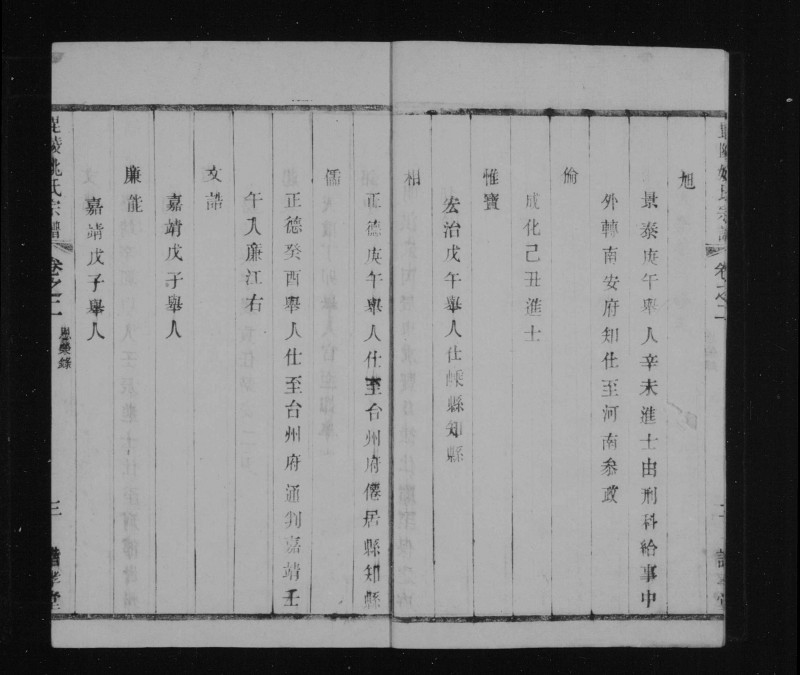 旭
景泰庚午舉人辛未進士由刑科給事中
外轉南安府知仕至河南參政
倫
成化己丑進士
惟寶
宏治戊午舉人仕嵊縣知縣
相
正德庚午舉人仕至台州府僊居縣知縣
儒
正德癸酉舉人仕至台州府通判嘉靖壬
午入廉江右
文誥
嘉靖戊子舉人
廉能
嘉靖戊子舉人
毘陵姚氏宗譜
卷之二
三